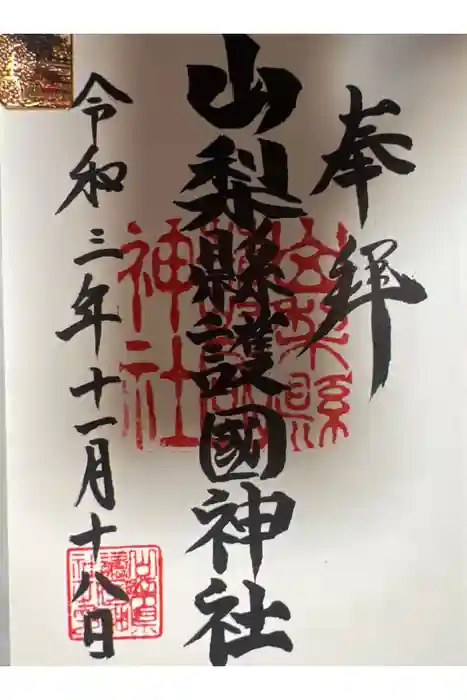 奉拝
山梨縣護國神社
令和三年十一月十八日
山梨縣
護國
神社